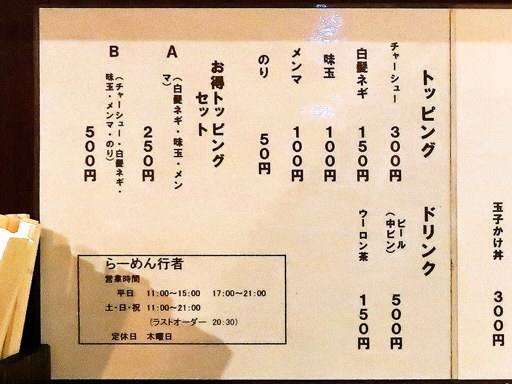 玉子かけ丼 300円
トッピング
チャーシュー 300円
白髪ネギ 150円
味玉 100円
メンマ 100円
のり 50円
お得トッピング
セット
A 250円
(白髪ネギ・味玉・メン
マ)
B 500円
(チャーシュー・白髪ネギ・
味玉・メンマ・のり)
ドリンク
ビール 500円
(中ビン)
ウーロン茶 150円
らーめん行者
営業時間
平日 11:00〜15:00 17:00〜21:00
土・日・祝 11:00〜21:00
(ラストオーダー 20:30)
定休日 木曜日